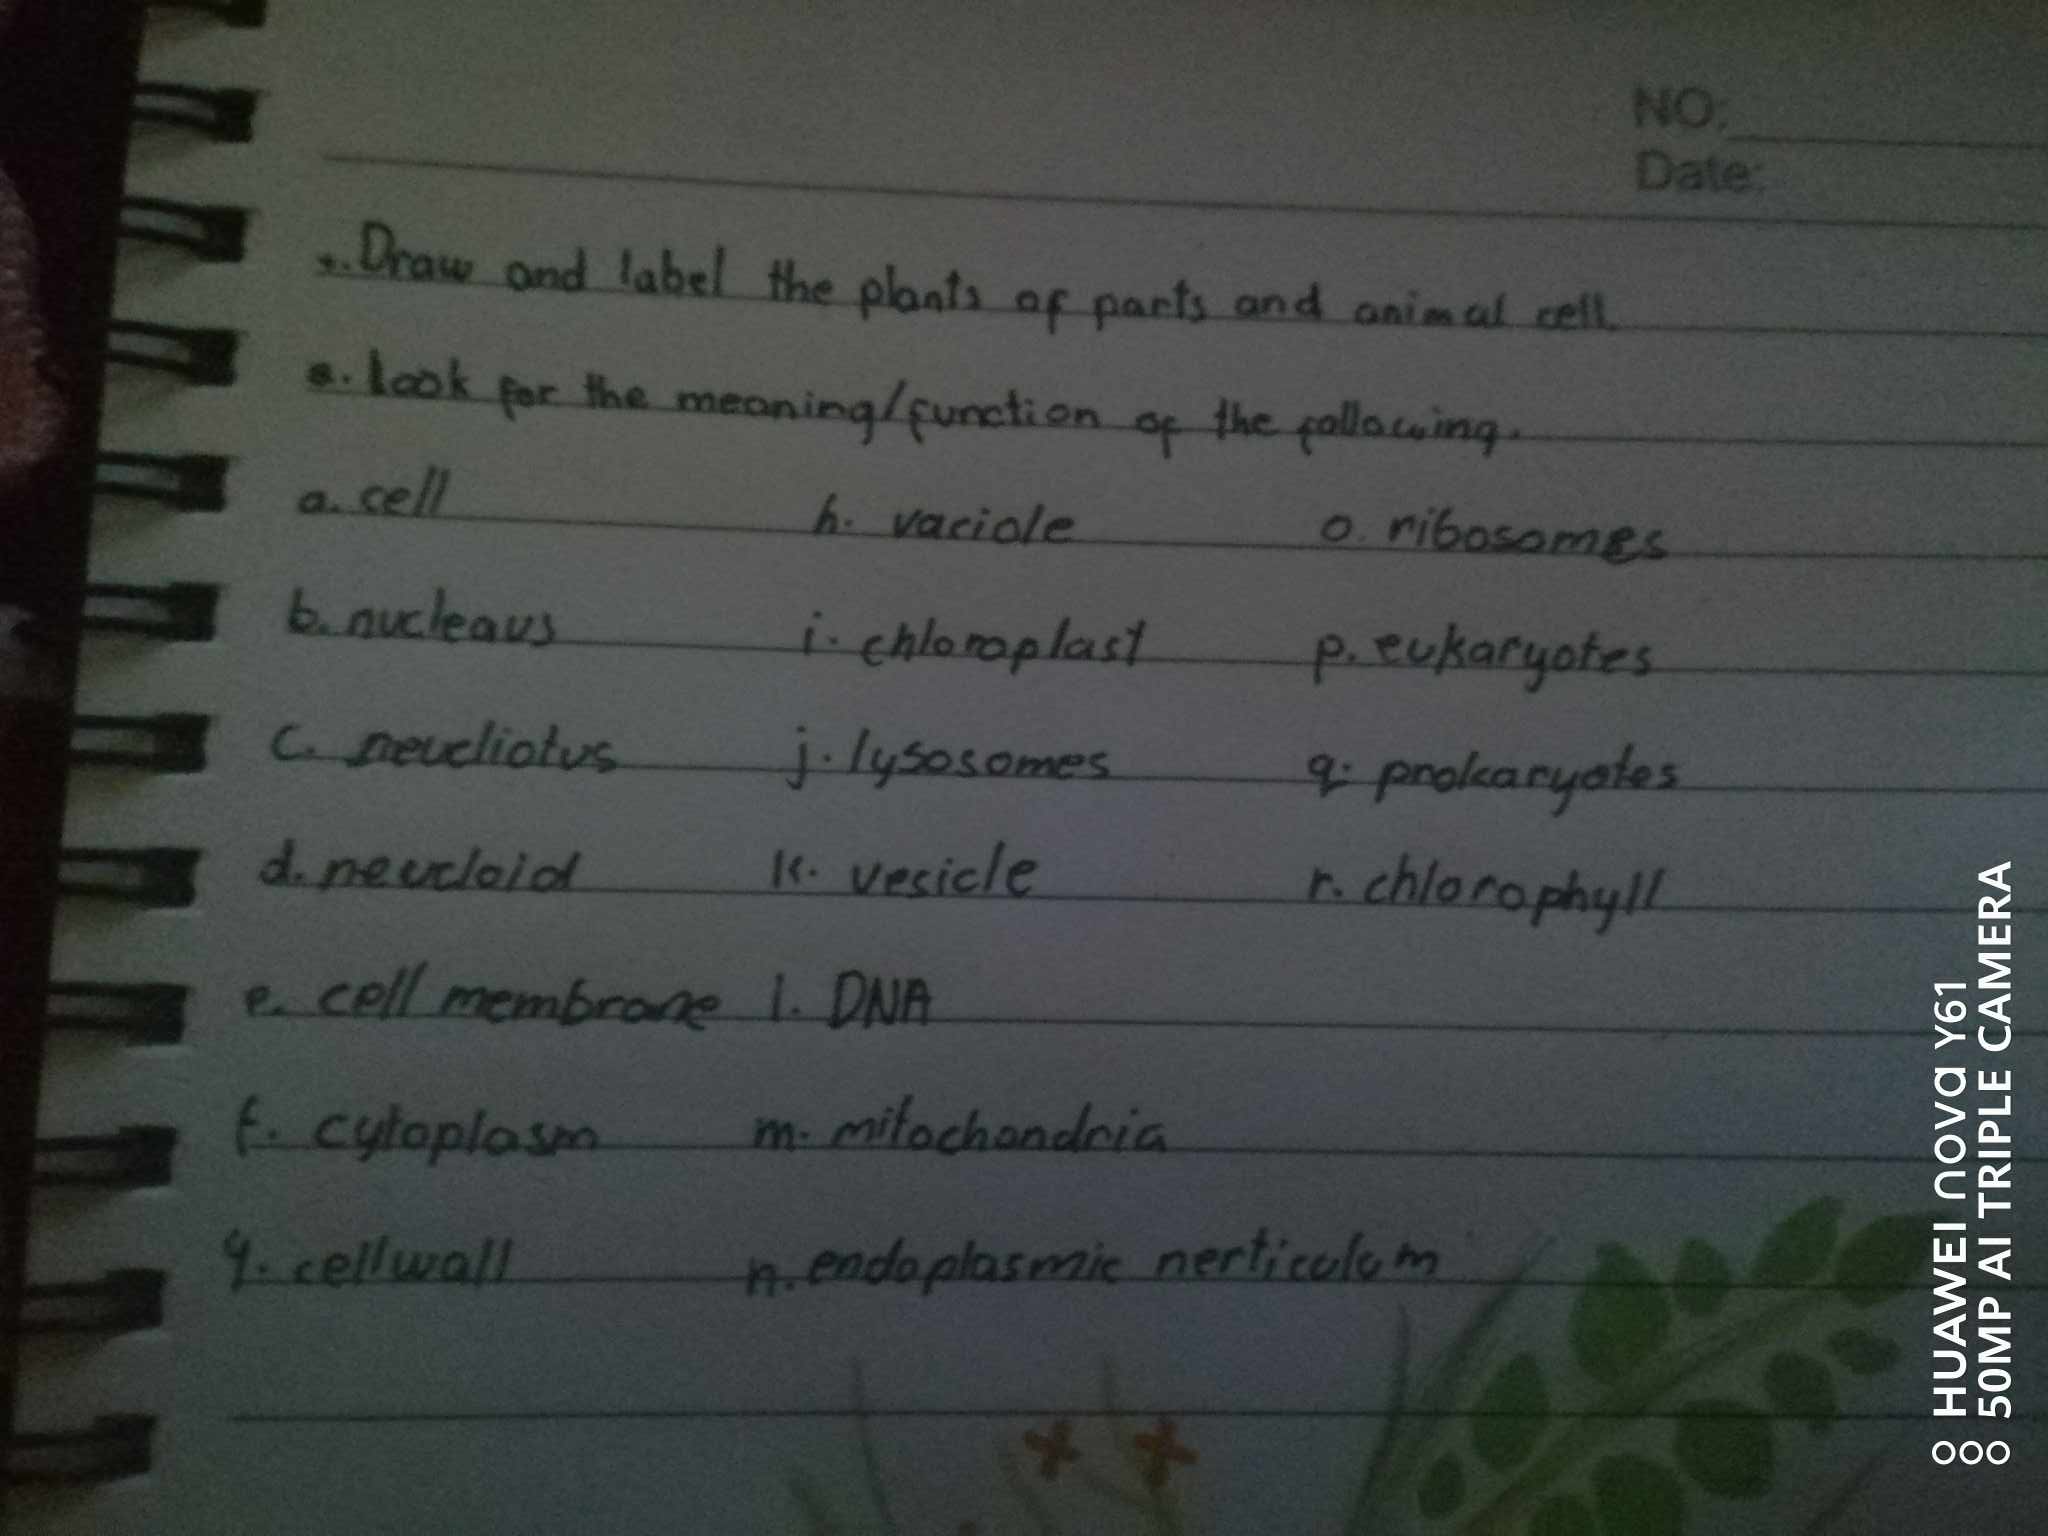 NO:
Date:
. Draw and label the plants of parts and animal cell.
. Look for the meaning/function of the following.
a. cell h. vaciole o. ribosomes
b. nucleaus i. chloroplast p. eukaryotes
c. neucliotus j. lysosomes q. prokaryotes
d. neucloid k. vesicle r. chlorophyll
e. cell membrane l. DNA
f. cytoplasm m. mitochondria
g. cellwall n. endoplasmic nerticulum
HUAWEI nova Y61
50MP AI TRIPLE CAMERA